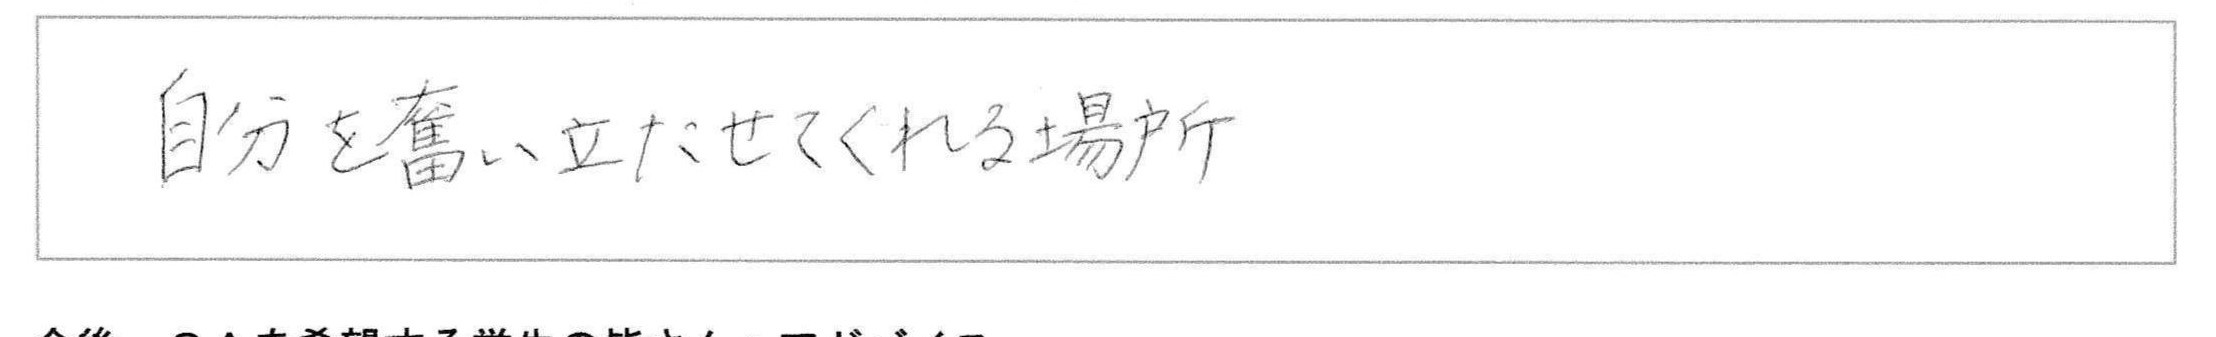 自分を奮い立たせてくれる場所